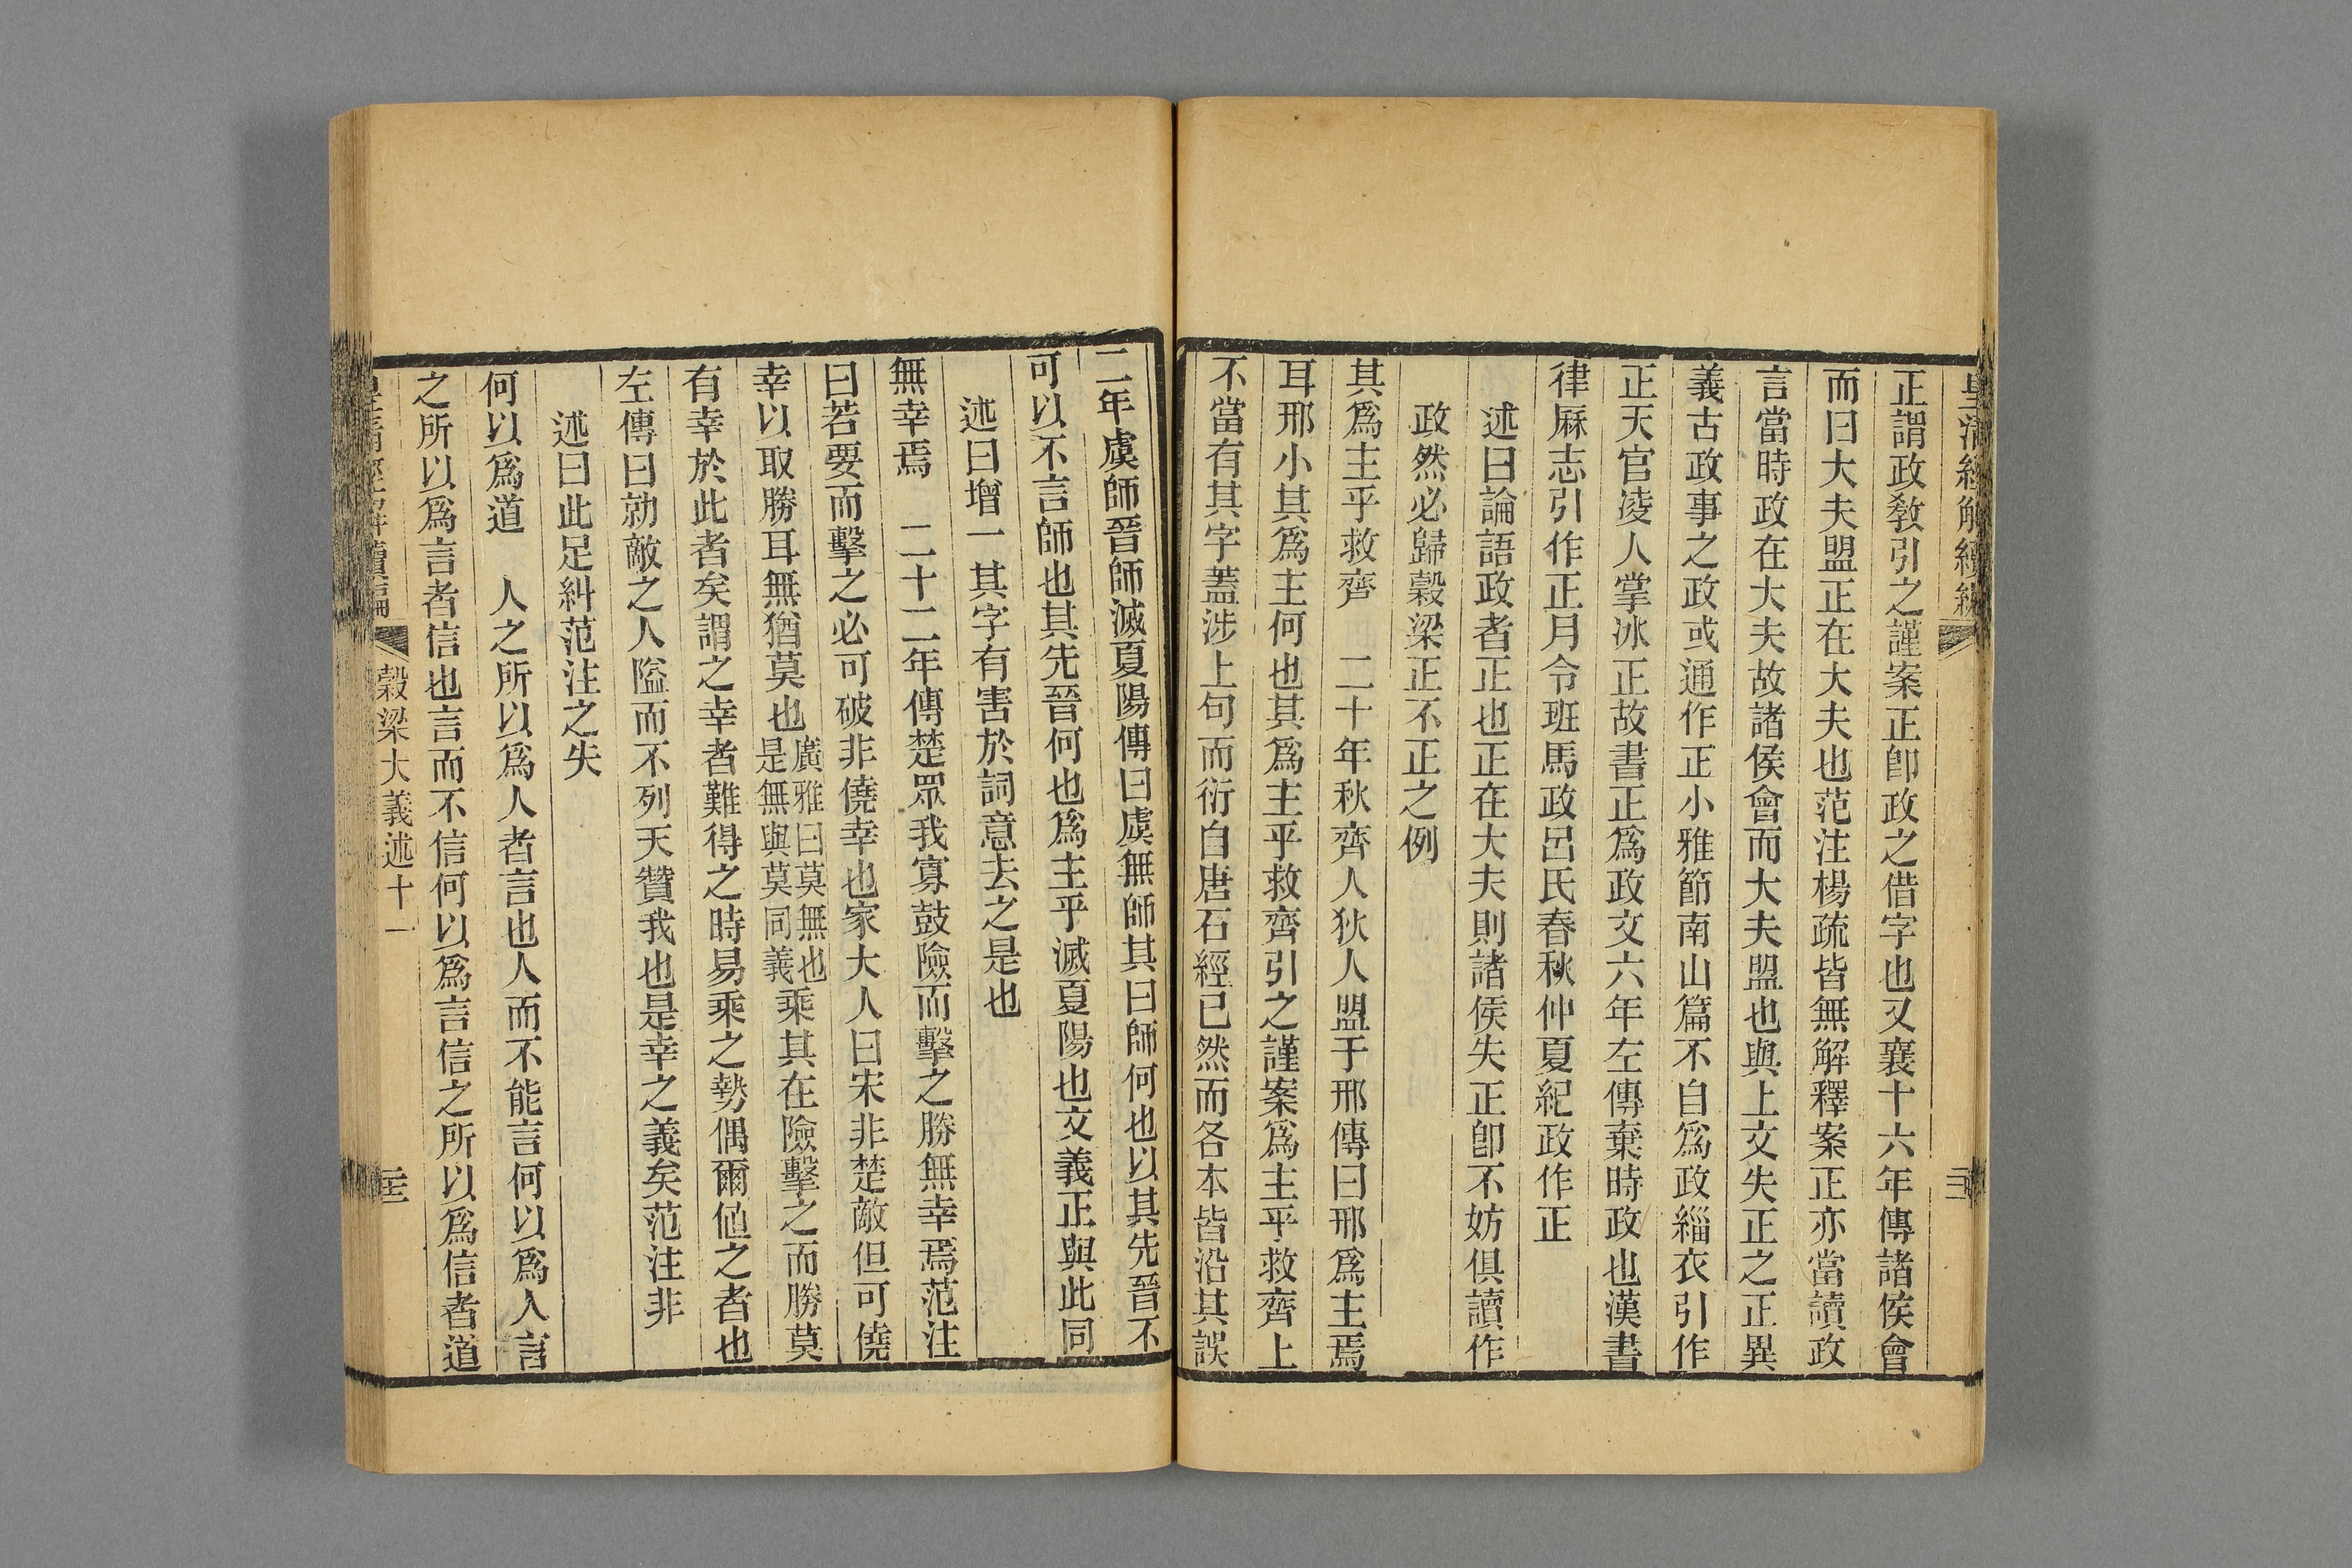 正謂政教引之謹案正卽政之借字也又襄十六年傳諸侯會
而曰大夫盟正在大夫也范注楊疏皆無解釋案正亦當讀政
言當時政在大夫故諸侯會而大夫盟也與上文失正之正異
義古政事之政或通作正小雅節南山篇不自爲政緇衣引作
正天官凌人掌冰正故書正爲政文六年左傳棄時政也漢書
律厤志引作正月令班馬政呂氏春秋仲夏紀政作正
述曰論語政者正也正在大夫則諸侯失正卽不妨俱讀作
政然必歸穀梁正不正之例
其爲主乎救齊 二十年秋齊人狄人盟于邢傳曰邢爲主焉
耳邢小其爲主何也其爲主乎救齊引之謹案爲主乎救齊上
不當有其字蓋涉上句而衍自唐石經已然而各本皆沿其誤
二年虞師晉師滅夏陽傳曰虞無師其曰師何也以其先晉不
可以不言師也其先晉何也爲主乎滅夏陽也文義正與此同
述曰增一其字有害於詞意去之是也
無幸焉 二十二年傳楚眾我寡鼓險而擊之勝無幸焉范注
曰若要而擊之必可破非僥幸也家大人曰宋非楚敵但可僥
幸以取勝耳無猶莫也廣雅曰莫無也是無與莫同義乘其在險擊之而勝莫
有幸於此者矣謂之幸者難得之時易乘之勢偶爾値之者也
左傳曰勍敵之人隘而不列天贊我也是幸之義矣范注非
述曰此足糾范注之失
何以爲道 人之所以爲人者言也人而不能言何以爲人言
之所以爲言者信也言而不信何以爲言信之所以爲信者道
穀梁大義述十一